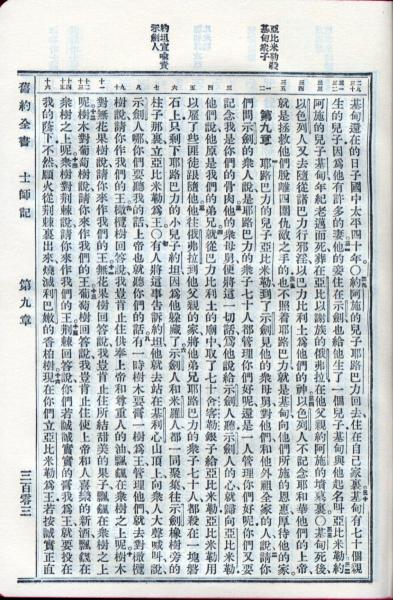 亞比米勒殺
基甸衆子
約坦宣喩責
示劍人
基甸還在的日子國中太平四十年〇約阿施的兒子耶路巴力回去住在自己家裏基甸有七十個親
生的兒子因爲他有許多的妻他的妾住在示劍也給他生了一個兒子基甸與他起名叫亞比米勒約
阿施的兒子基甸年紀老邁而死葬在亞比以謝族的俄弗拉在他父親約阿施的墳墓裏〇基甸死後
以色列人又去隨從諸巴力行邪淫以巴力比利土爲他們的神以色列人不記念耶和華他們的上帝
就是拯救他們脫離四圍仇敵之手的也不照着耶路巴力就是基甸向他們所施的恩惠厚待他的家
第九章 耶路巴力的兒子亞比米勒到了示劍見他的衆母舅對他們和他外祖全家的人說請你
們問示劍的衆人說是耶路巴力的衆子七十人都管理你們好呢還是一人管理你們好呢你們又要
記念我是你們的骨肉他的衆母舅便將這一切話爲他說給示劍人聽示劍人的心就歸向亞比米勒
他們說他原是我們的弟兄就從巴力比利土的廟中取了七十舍客勒銀子給亞比米勒亞比米勒用
以雇了些匪徒跟隨他他往俄弗拉到他父親的家將他弟兄耶路巴力的衆子七十人都殺在一塊磐
石上只剩下耶路巴力的小兒子約坦因爲他躱藏了示劍人和米羅人都一同聚集往示劍橡樹旁的
柱子那裏立亞比米勒爲王〇有人將這事告訴約坦他就去站在基利心山頂上向衆人大聲喊叫說
示劍人哪你們要聽我的話上帝也就聽你們的話有一時樹木要膏一樹爲王管理他們就去對橄欖
樹說請你作我們的王橄欖樹回答說我豈肯止住供奉上帝和尊重人的油飄颻在衆樹之上呢樹木
對無花果樹說請你來作我們的王無花果樹回答說我豈肯止住所結甜美的果子飄颻在衆樹之上
呢樹木對葡萄樹說請你來作我們的王葡萄樹回答說我豈肯止住使上帝和人喜樂的新酒飄颻在
衆樹之上呢衆樹對荊棘說請你來作我們的王荊棘回答說你們若誠誠實實的膏我爲王就要投在
我的蔭下不然願火從荊棘裏出來燒滅利巴嫩的香柏樹現在你們立亞比米勒爲王若按誠實正直
舊約全書 士師記 第九章 三百零三